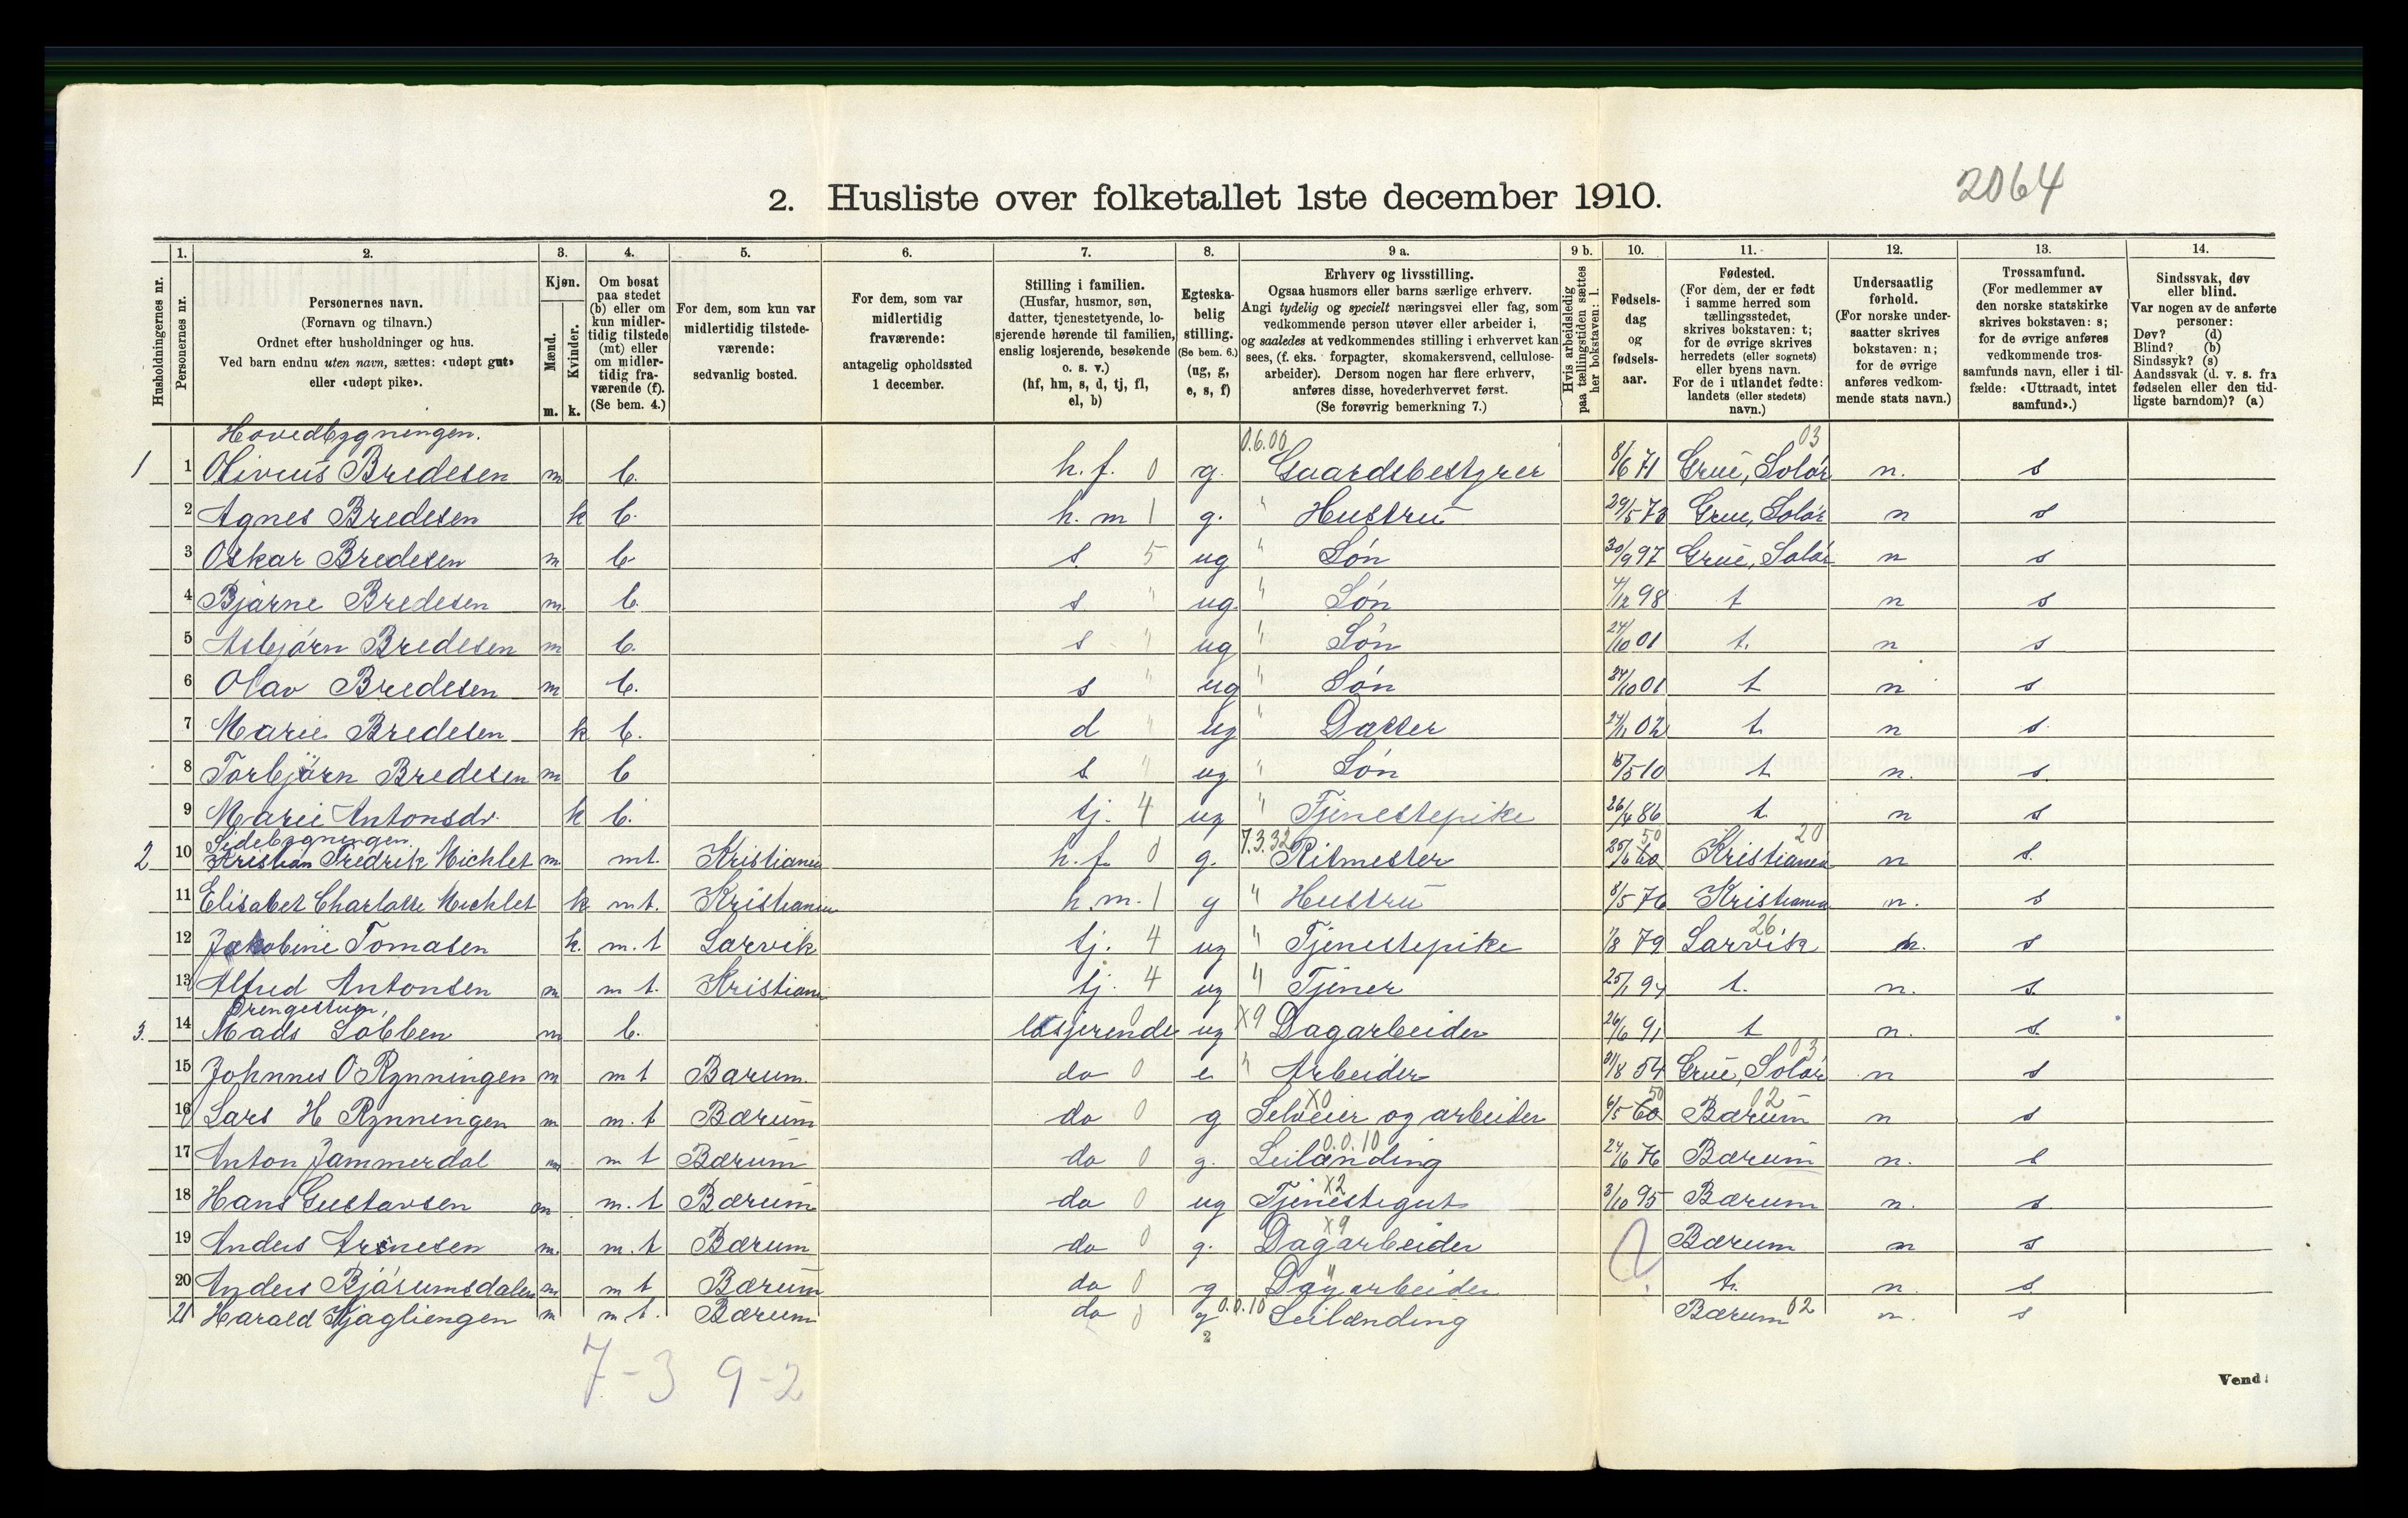 2. Husliste over folketallet 1ste december 1910.
2064
1. 2. 3. 4. 5. 6. 7. 8. 9 a. 9 b. 10. 11. 12. 13. 14.
Husholdningernes nr.
Personernes nr.
Personernes navn.
(Fornavn og tilnavn.)
Ordnet efter husholdninger og hus.
Ved barn endnu uten navn, sættes: «udøpt gut»
eller «udøpt pike».
Kjøn.
Mænd.
Kvinder.
m. k.
Om bosat
paa stedet
(b) eller om
kun midler-
tidig tilstede
(mt) eller
om midler-
tidig fra-
værende (f).
(Se bem. 4.)
For dem, som kun var
midlertidig tilstede-
værende:
sedvanlig bosted.
For dem, som var
midlertidig
fraværende:
antagelig opholdssted
1 december.
Stilling i familien.
(Husfar, husmor, søn,
datter, tjenestetyende, lo-
sjerende hørende til familien,
enslig losjerende, besøkende
o. s. v.)
(hf, hm, s, d, tj, fl,
el, b)
Egteska-
belig
stilling.
(Se bem. 6.)
(ug, g,
e, s, f)
Erhverv og livsstilling.
Ogsaa husmors eller barns særlige erhverv.
Angi tydelig og specielt næringsvei eller fag, som
vedkommende person utøver eller arbeider i,
og saaledes at vedkommendes stilling i erhvervet kan
sees, (f. eks. forpagter, skomakersvend, cellulose-
arbeider). Dersom nogen har flere erhverv,
anføres disse, hovederhvervet først.
(Se forøvrig bemerkning 7.)
Hvis arbeidsledig
paa tællingstiden sættes
her bokstaven: l.
Fødsels-
dag
og
fødsels-
aar.
Fødested.
(For dem, der er født
i samme herred som
tællingsstedet,
skrives bokstaven: t;
for de øvrige skrives
herredets (eller sognets)
eller byens navn.
For de i utlandet fødte:
landets (eller stedets)
navn.)
Undersaatlig
forhold.
(For norske under-
saatter skrives
bokstaven: n;
for de øvrige
anføres vedkom-
mende stats navn.)
Trossamfund.
(For medlemmer av
den norske statskirke
skrives bokstaven: s;
for de øvrige anføres
vedkommende tros-
samfunds navn, eller i til-
fælde: «Uttraadt, intet
samfund».)
Sindssvak, døv
eller blind.
Var nogen av de anførte
personer:
Døv? (d)
Blind? (b)
Sindssyk? (s)
Aandssvak (d. v. s. fra
fødselen eller den tid-
ligste barndom)? (a)
Hovedbygningen. 0.6.00 03
1 1 Olivius Bredesen m b. h. f. 0 g. Gaardsbestyrer 8/6 71 Grue, Solør n. s
2 Agnes Bredesen k b. h. m 1 g. " Hustru 29/5 73 Grue, Solør n s
3 Oskar Bredesen m b. s. 5 ug " Søn 30/9 97 Grue, Solør n s
4 Bjarne Bredesen m. b. s " ug. " Søn 4/12 98 t n s
5 Asbjørn Bredesen m b. s " ug " Søn 24/10 01 t. n s
6 Olav Bredesen m b. s " ug " Søn 24/10 01 t n s
7 Marie Bredesen k b. d " ug " Datter 24/11 02 t. n s.
8 Torbjørn Bredesen m b s " ug " Søn 15/5 10 t n. s.
9 Marie Antonsdr. k b. tj. 4 ug " Tjenestepike 26/4 86 t. n s
Sidebygningen. 7.3.32 50 20
2 10 Kristian Fredrik Michlet m. mt. Kristiania h. f. 0 g. Ritmester 25/6 60 Kristiania n s.
11 Elisabet Charlotte Michlet k. m.t. Kristiania h.m. 1 g " Hustru 8/5 76 Kristiania n. s
12 Jakobine Tomasen k. m. t Larvik tj. 4 ug " Tjenestepike 1/8 79 Larvik 26 n. s
13 Alfred Antonsen m m t. Kristiania tj. 4 ug " Tjener 25/1 94 t. n. s.
Drengestuen,
3. 14 Mads Løbben m b. losjerende 0 ug X9 Dagarbeider 26/6 91 t n. s.
15 Johnnes O Rynningen m m t Bærum. do 0 e " Arbeider 31/8 54 Grue, Solør 03 n s
16 Lars H Rynningen m m. t Bærum do 0 g Selveier og arbeider X0 6/5 60 50 Bærum 02 n s
17 Anton Jammerdal m m t Bærum do 0 g. Leilænding 0.0.10 24/6 76 Bærum n. s
18 Hans Gustavsen m. m. t Bærum do 0 ug Tjenestegut X2 3/10 95 Bærum n. s.
19 Anders Arnesen m. m. t Bærum do 0 g. Dagarbeider X9 Bærum n s
20 Anders Bjørumsdalen m m t Bærum do 0 g Dagarbeider " ? t. n. s
21 Harald Kjagliengen m m t. Bærum do 0 g 0.0.10 Leilænding Bærum 02 n. s
2
7-3 9-2
Vend!